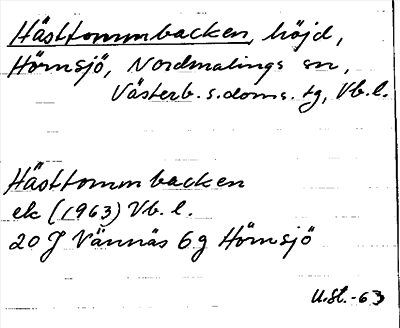 Hästtommbacken, höjd,
Hörnsjö, Nordmalings sn,
Västerb. s. doms. tg, Vb. l.
Hästtommbacken
ek (1963) Vb. l.
20 J Vännäs 6 g Hörnsjö
U. St. -63